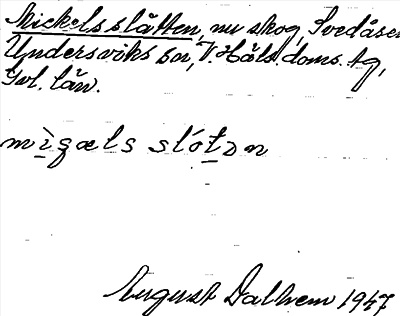 Mickelsslåtten, nu skog, Svedåsen
Undersviks sn, V. Häls. doms. tg,
Gvl. län.
mìgæls slótən
August Dalhem 1947